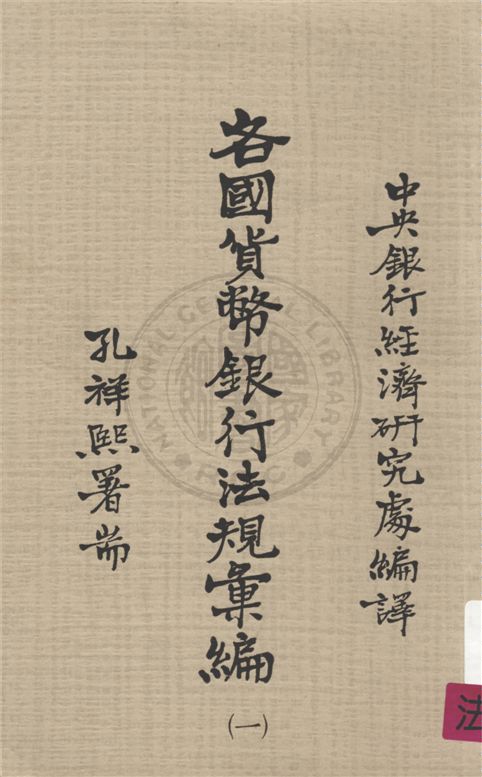 中央銀行經濟研究處編譯
各國貨幣銀行法規彙編
(一)
孔祥熙署耑
法
NATIONAL CENTRAL LIBRARY